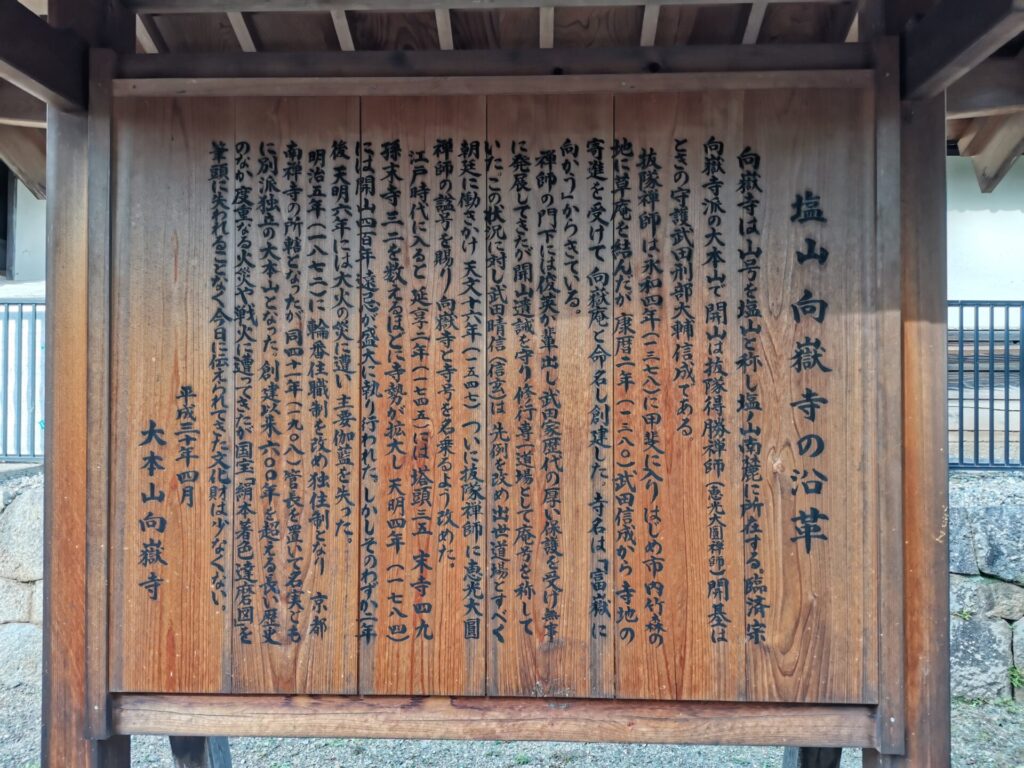 塩山向嶽寺の沿革
向嶽寺は山号を塩山と称し塩ノ山南麓に所在する。臨済宗
向嶽寺派の大本山で開山は抜隊得勝禅師（恵光大圓禅師）開基は
ときの守護武田刑部大輔信成である
抜隊禅師は永和四年（一三七八）に甲斐に入りはじめ市内竹森の
地に草庵を結んだが康暦二年（一三八〇）武田信成から寺地の
寄進を受けて向嶽庵と命名し創建した。寺名は「富嶽に
向かう」からきている。
禅師の門下には俊英が輩出し武田家歴代の厚い保護を受け無事
に発展してきたが開山遺誡を守り修行専一道場として庵号を称して
いたこの状況に対し武田晴信（信玄）は先例を改め出世道場とすべく
朝廷に働きかけ天文十六年（一五四七）ついに抜隊禅師に恵光大圓
禅師の諡号を賜り向嶽寺と寺号を名乗るよう改めた。
江戸時代に入ると延享二年（一七四五）には塔頭三五末寺四九
孫末寺三二を数えるほどに寺勢が拡大し天明四年（一七八四）
には開山四百年遠忌が盛大に執り行われた。しかしそのわずか二年
後天明六年には大火の災に遭い主要伽藍を失った。
明治五年（一八七二）に輪番住職制を改め独住制となり京都
南禅寺の所轄となったが同四十一年（一九〇八）管長を置いて名実とも
に別派独立の大本山となった。創建以来六〇〇年を超える長い歴史
のなか度重なる火災や戦火に遭ってきたが国宝「絹本着色達磨図」を
筆頭に失われることなく今日に伝えられてきた文化財は少なくない。
平成三十年四月
大本山向嶽寺